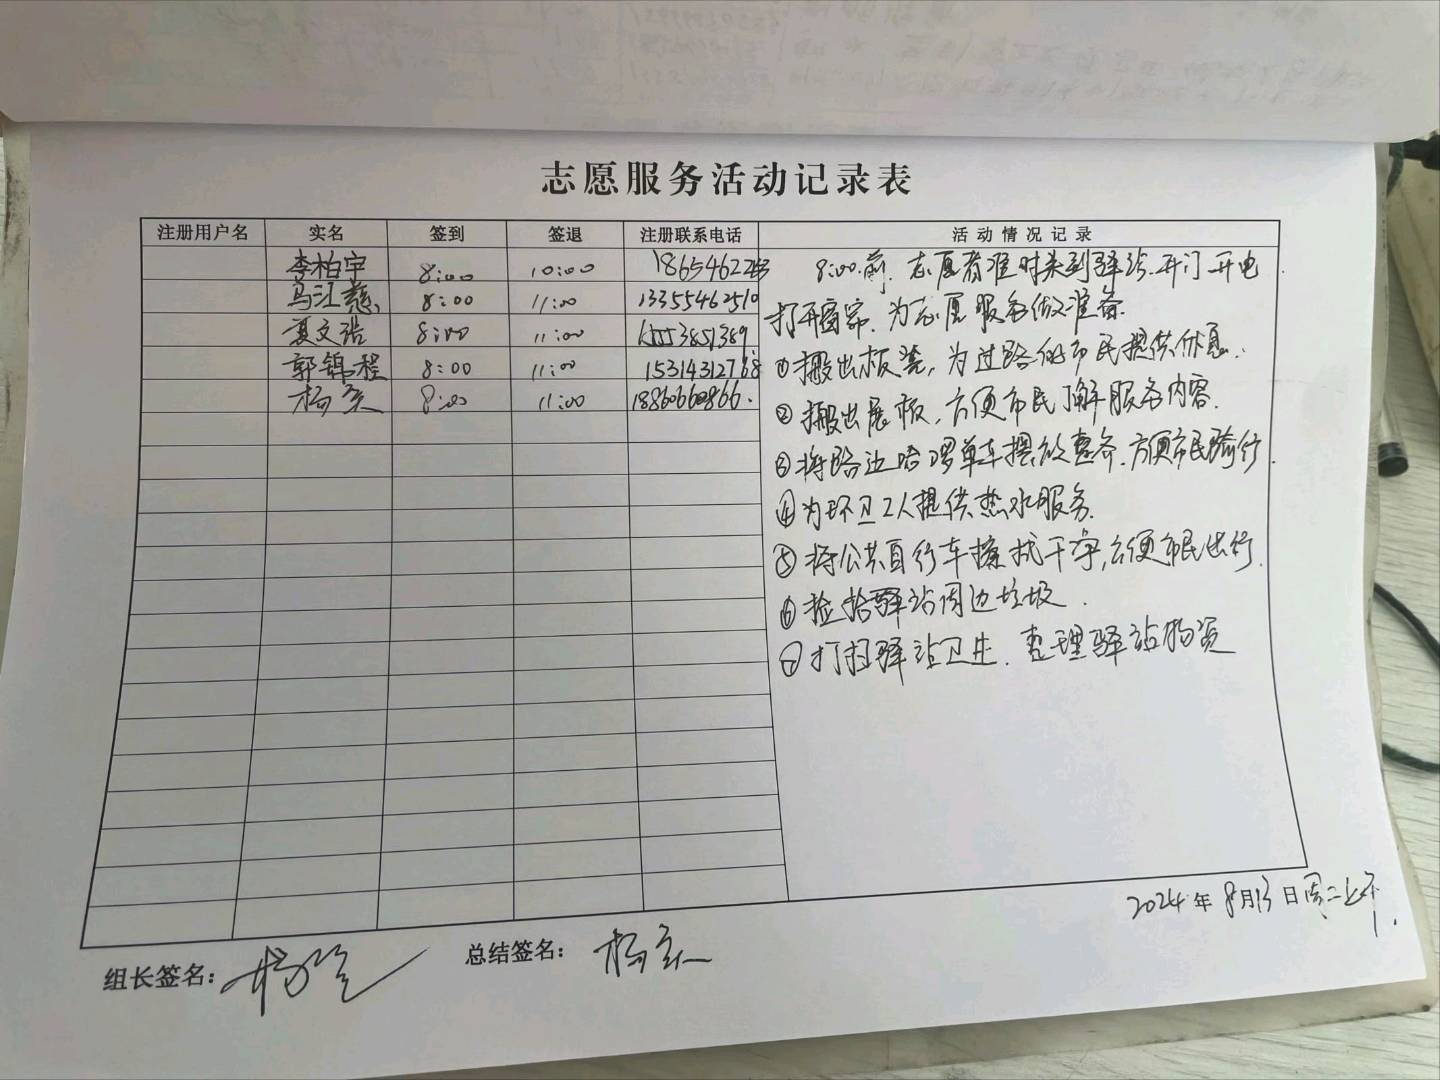 志愿服务活动记录表
注册用户名 实名 签到 签退 注册联系电话 活动情况记录
李柏宇 8:00 10:00
马江慈 8:00 11:00 13355462510
夏文浩 8:00 11:00
郭锦程 8:00 11:00 15314312768
杨 8:00 11:00 18860660866.
8:00前,志愿者准时来到驿站.开门开电
打开窗帘.为志愿服务做准备.
①搬出板凳,为过路的市民提供休息.
②搬出展板,方便市民了解服务内容.
③将路边哈啰单车摆放整齐.方便市民骑行.
④为环卫工人提供热水服务.
⑤将公共自行车擦拭干净,方便市民出行.
⑥捡拾驿站周边垃圾.
⑦打扫驿站卫生.整理驿站物资
2024年8月13日周二上午.
组长签名: 总结签名: